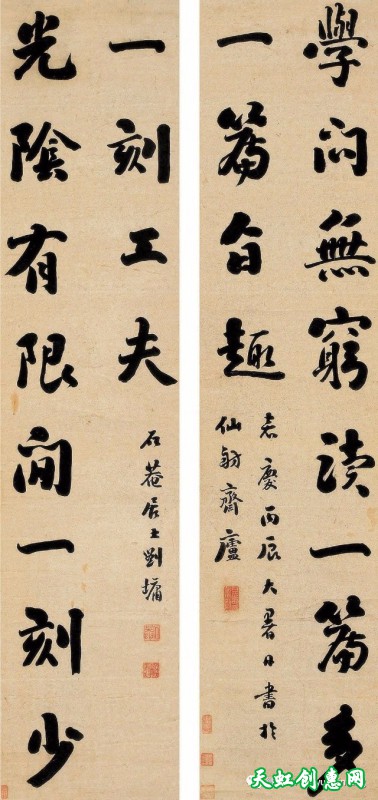 學問無窮讀一篇多
一篇旨趣
嘉慶丙辰大暑日書於
仙舫齋廬
光陰有限間一刻少
一刻工夫
石菴居士劉墉
天虹创惠网